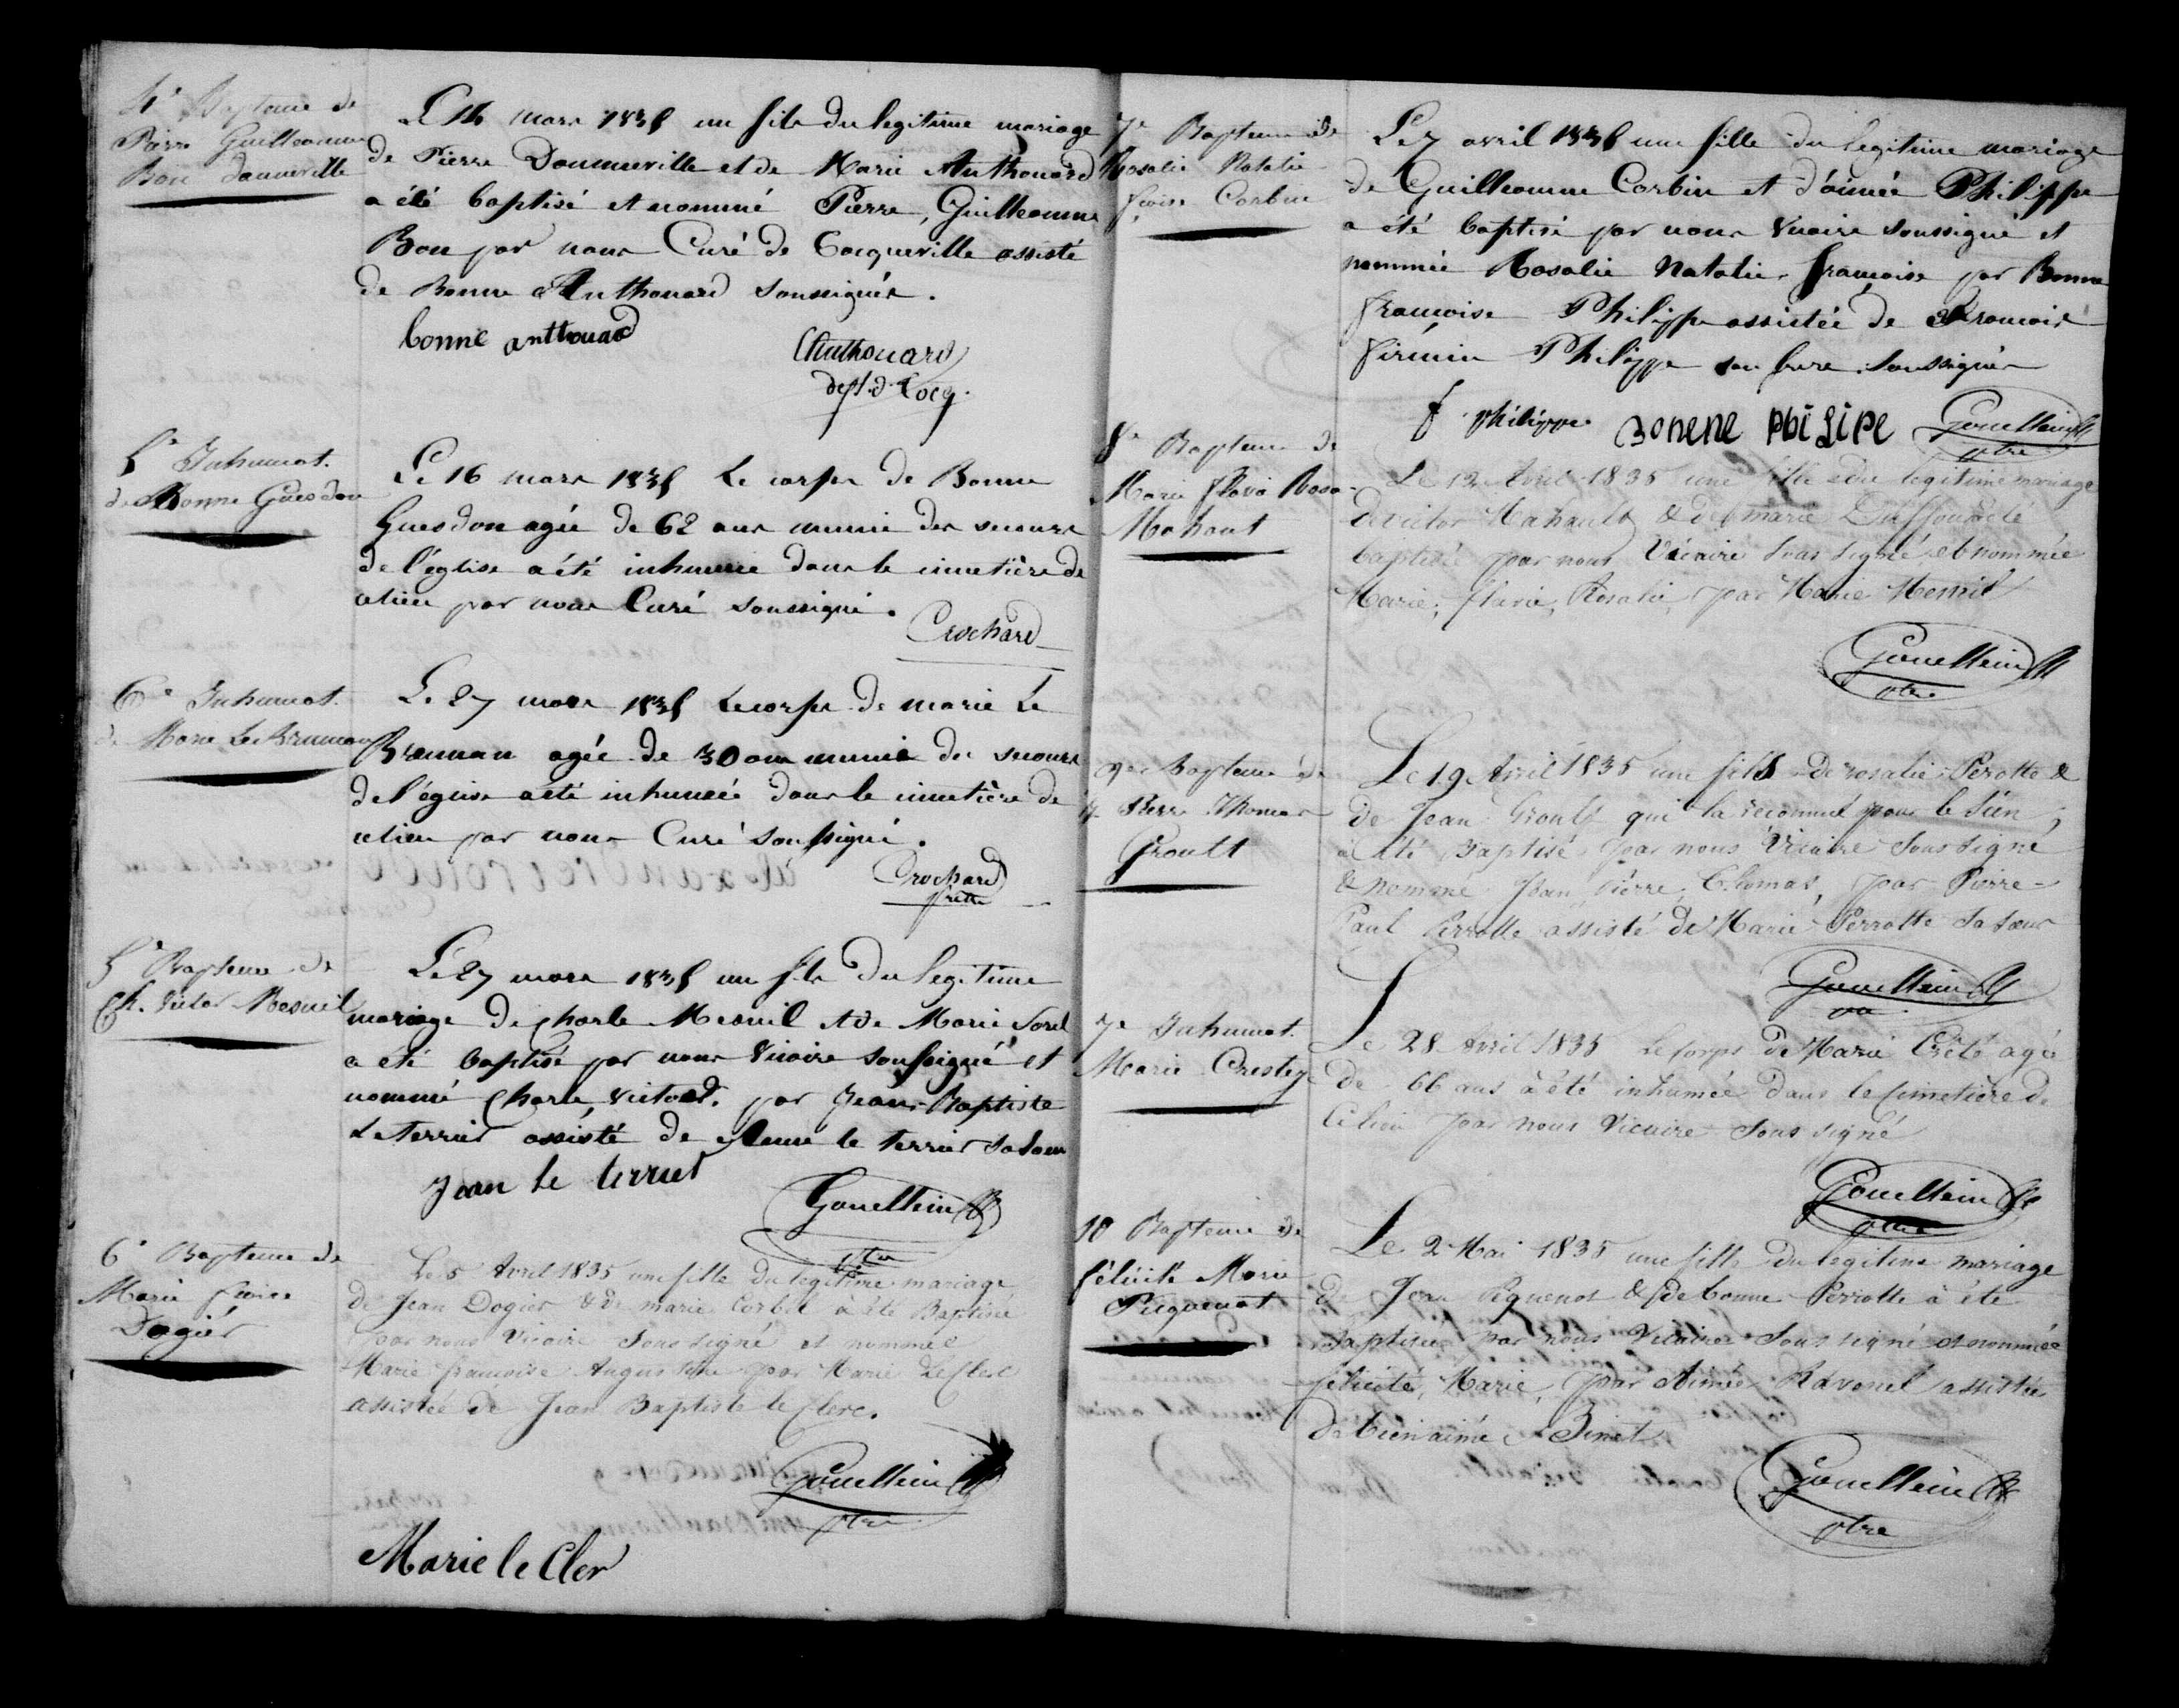 4e Bapteme de
Pierre Guilleaume
Bon Danneville
Le 16 mars 1835 un fils du legitime mariage
de Pierre Danneville et de Marie Anthouard
a été baptisé et nommé Pierre, Guilleaume
Bon par nous Curé de Cocqueville assisté
de Bonne Anthouard soussignés.
bonne anthouard
Anthouard
desst. d. Cocq.
5e Inhumat.
de Bonne Guesdon
Le 16 mars 1835 Le corps de Bonne
Guesdon agée de 62 ans munie des secours
de l'église a été inhumée dans le cimetière de
celieu par nous Curé soussigné.
Crochard
6e Inhumat.
de Marie Le Brunman
Le 27 mars 1835 Le corps de marie Le
Brunman agée de 30 ans munie des secours
de l'église a été inhumée dans le cimetière de
celieu par nous Curé soussigné.
Crochard
5e Bapteme de
Ch. Victor Mesnil
Le 27 mars 1835 un fils du legitime
mariage de Charle Mesnil et de Marie Sorel
a été baptisé par nous Vicaire soussigné et
nommé Charle, Victor, par Jean-Baptiste
Le terrier assisté de le terrier sa soeur
Jean le terrier
Gouellain
ptre
6e Bapteme de
Marie fçoise
Dogier
Le 5 Avril 1835 une fille du legitime mariage
de Jean Dogier & de marie Corbet à été Baptisée
par nous Vicaire Sous signé et nommée
Marie françoise Augustine par Marie Le Clerc
assistée de Jean Baptiste le Clerc.
Gouellain
ptre
Marie le Cler
7e Bapteme de
Rosalie Natalie
fçoise Corbin
Le 7 avril 1835 une fille du legitime mariage
de Guilleaume Corbin et d'aimée Philippe
a été baptisée par nous Vicaire soussigné et
nommée Rosalie Natalie françoise par Bonne
françoise Philippe assistée de françois
firmin Philippe son frere soussignés
f philippe BONENE PhiLiPe Gouellain
ptre
8e Bapteme de
Marie flavie Rosa-
Mahaut
Le 12 Avril 1835 une fille du legitime mariage
de victor Mahault & de marie à été
baptisée par nous Vicaire Sous signé et nommée
Marie, flavie, Rosalie, par Marie Mesnil
Gouellain
ptre
9e Bapteme de
J. Pierre Thomas
Groult
Le 19 Avril 1835 un fils de rosalie Perotte &
de Jean Groult qui l'a reconnu pour le Sien,
à été Baptisé par nous Vicaire Sous signé
& nommé Jean, Pierre, Thomas, par Pierre-
Paul Perrotte assisté de Marie Perrotte Sa soeur
Gouellain
7e Inhumat.
Marie Crestey
Le 28 Avril 1835 Le Corps de Marie Crété agée
de 66 ans à été inhumée dans le Cimetière de
Ce lieu par nous Vicaire Sous signé
Gouellain
ptre
10 Bapteme de
félicité Marie
Picquenot
Le 2 Mai 1835 une fille du legitime mariage
de Jean Piquenot & de bonne Perrotte à été
Baptisée par nous Vicaire Sous signé et nommée
félicité, Marie, par Aimée Ravenel assistée
de bien aimé Binet
Gouellain
ptre